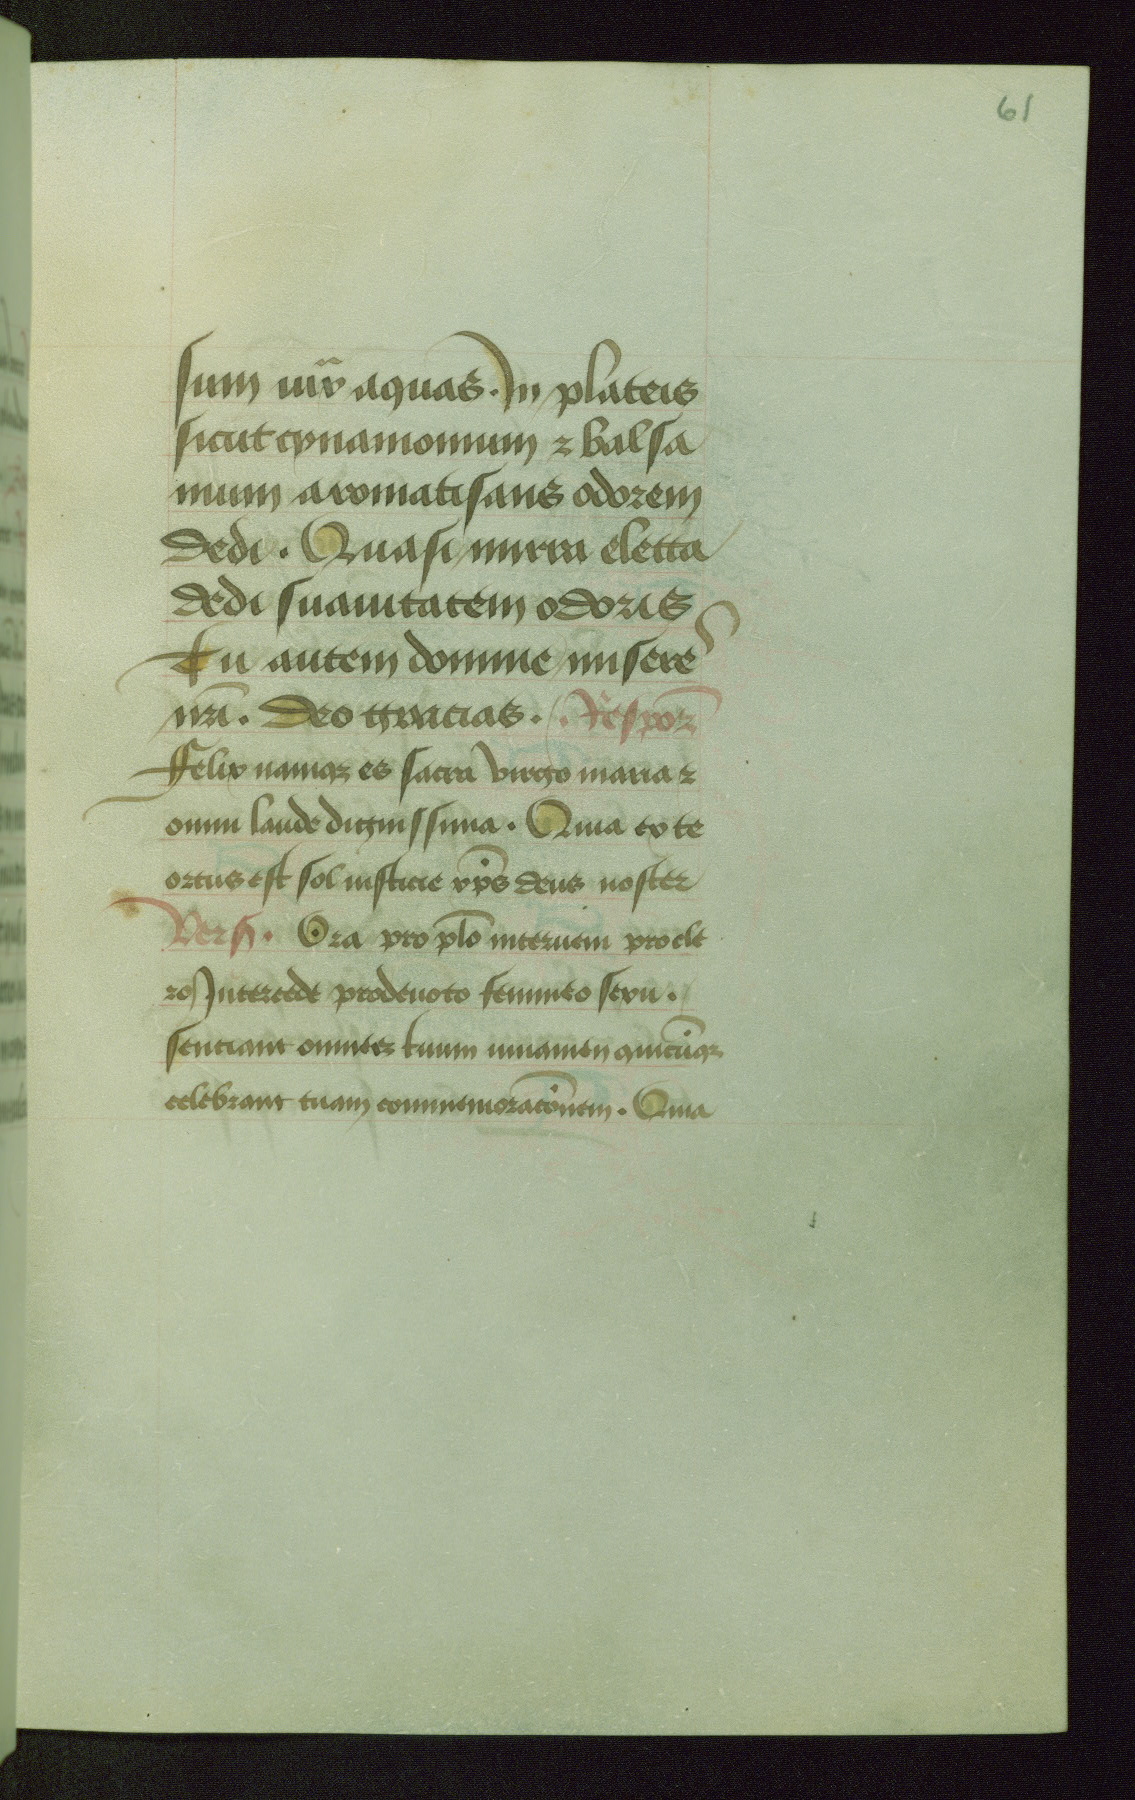 61
sum iux̄ aquas. In plateis
sicut cynamomum ⁊ balsa
mum aromatisans odorem
dedi. Quasi mirra eletta
dedi suauitatem odoris
Tu autem domine misere
nr̄i. Deo gracias. Respon̄
Felix namqꝫ es sacra virgo maria ⁊
omni laude dignissima. Quia ex te
ortus est sol iusticie xp̄s deus noster
Vers. Ora pro pl̄o interueni pro cle
ro Intercede pro deuoto femineo sexu.
sentiant omnes tuum iuuamen quicūqꝫ
celebrant tuam commemorac̄onem. Quia